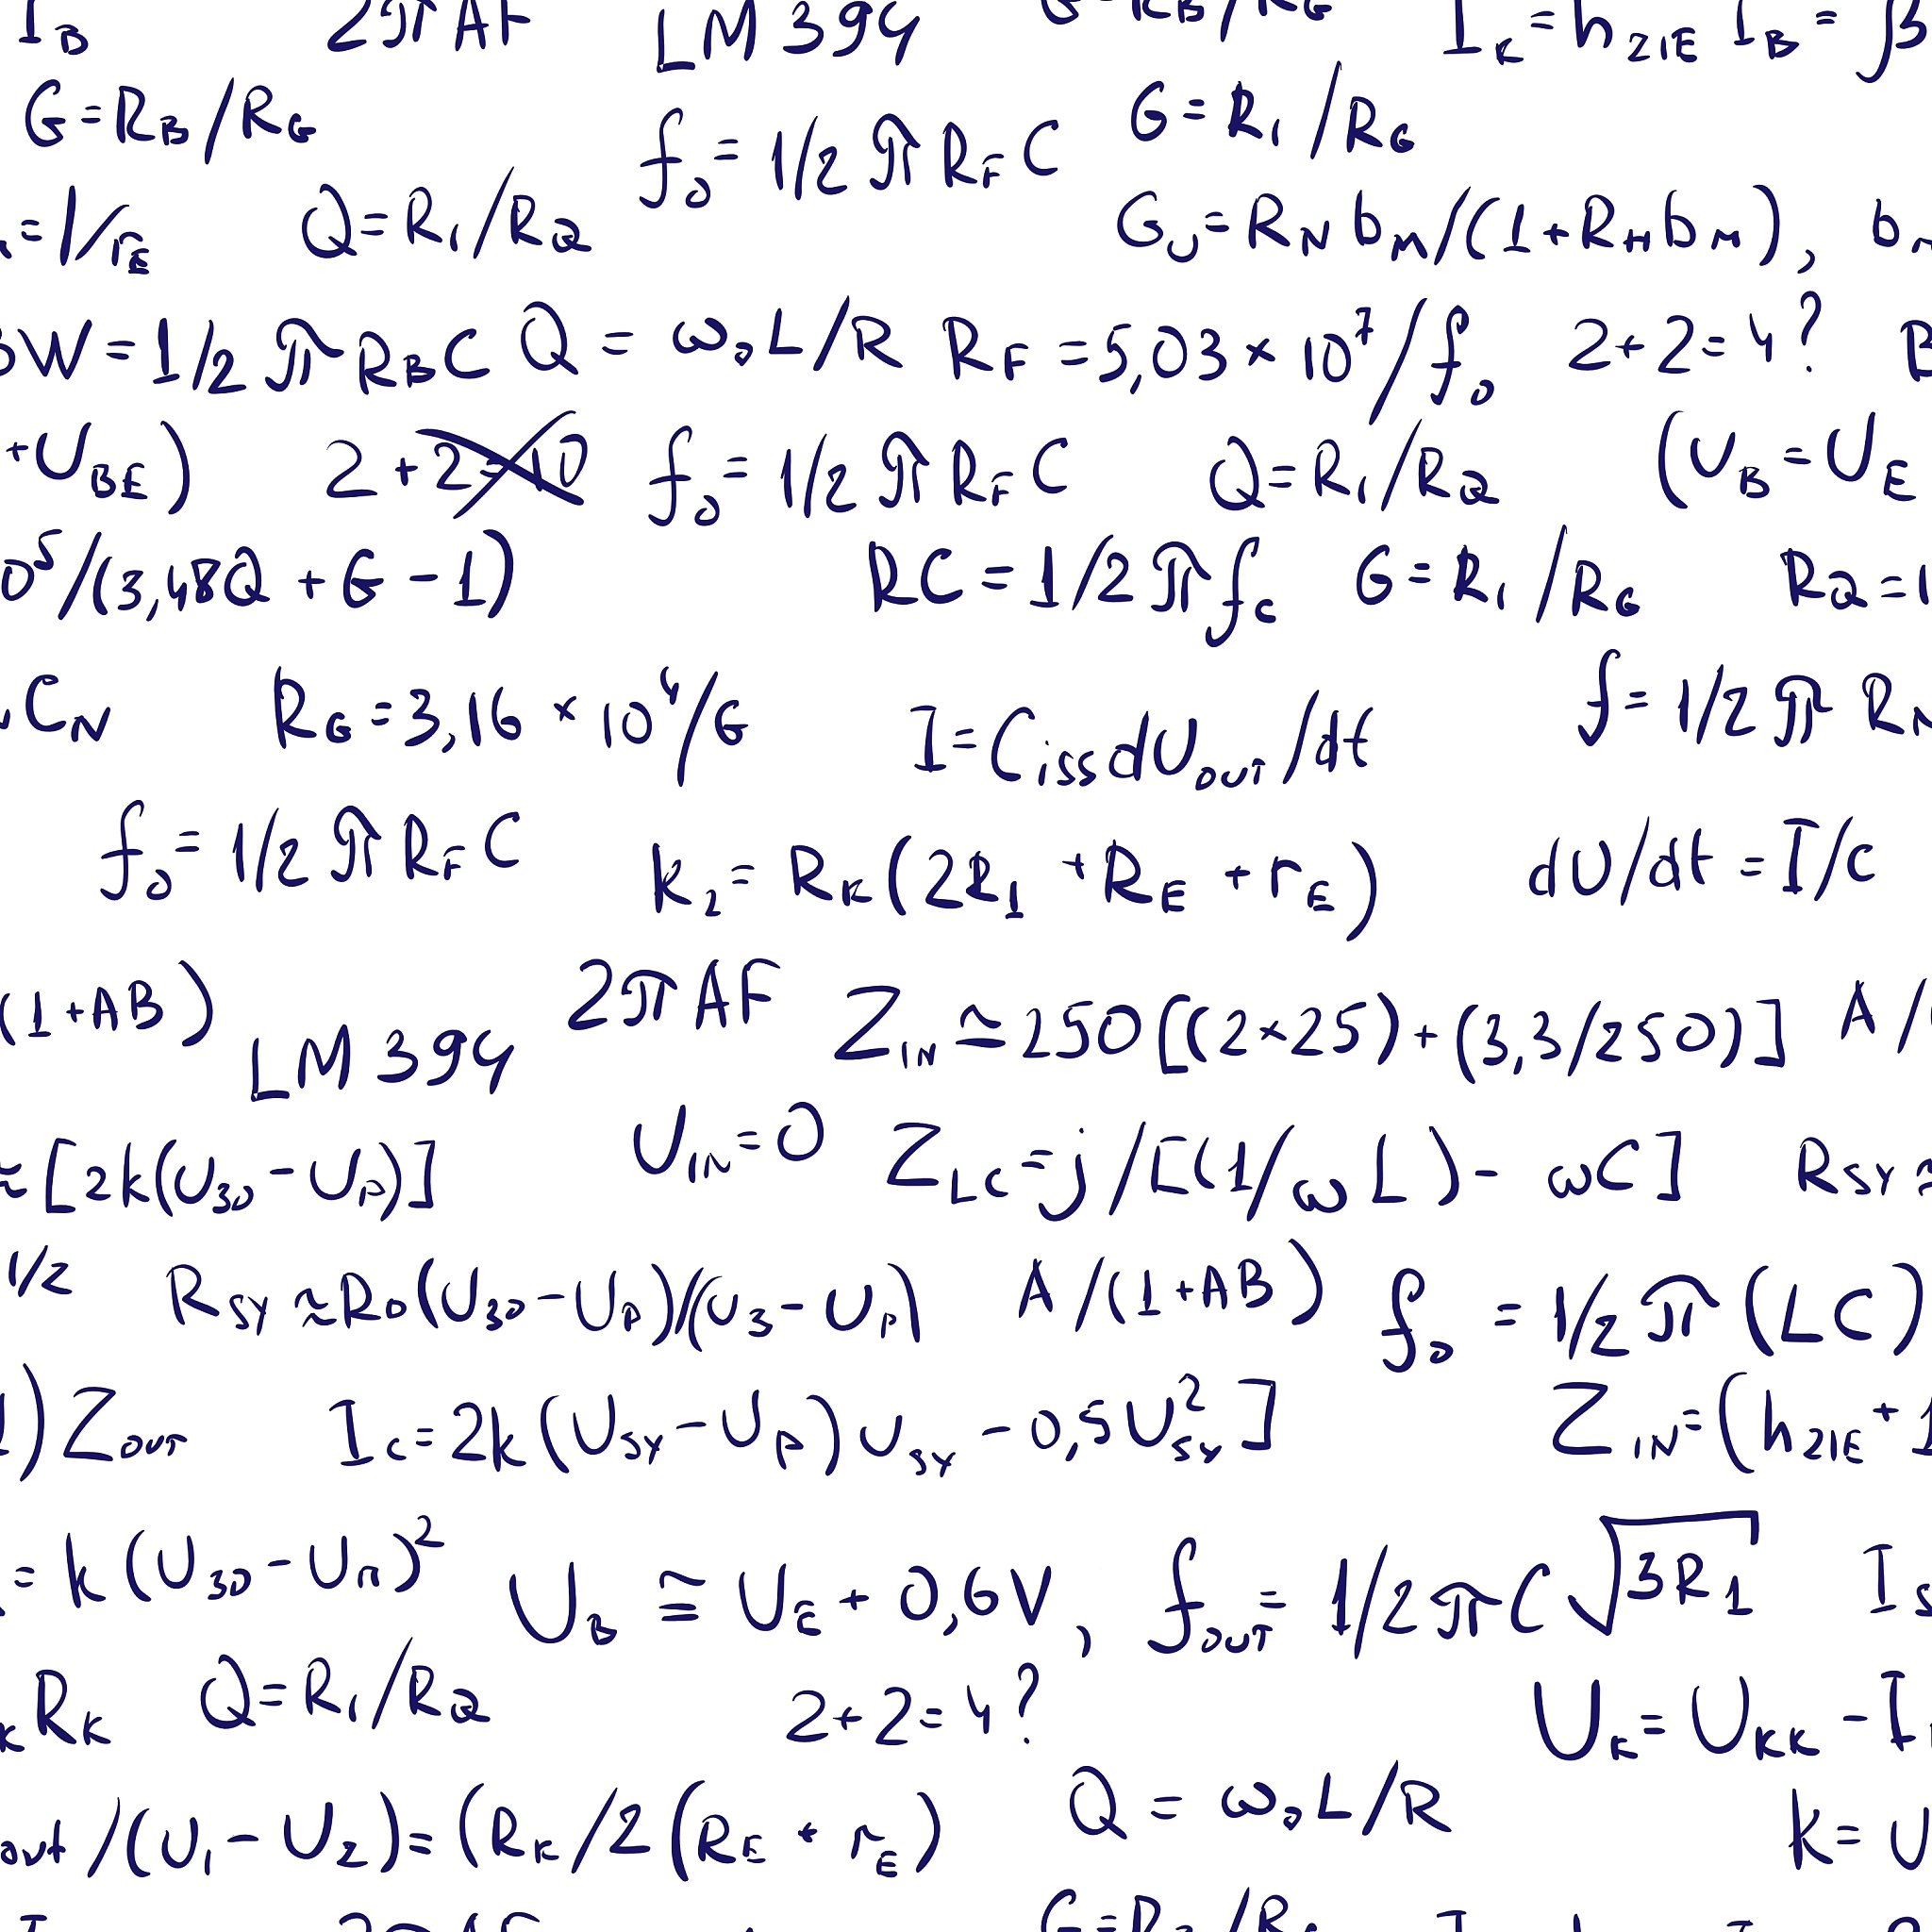 I_B 2πAF LM394 I_K = h_21E I_B = β
G = R_B/R_G f_0 = 1/2πR_F C G = R_1/R_G
= 1/r_E Q = R_1/R_Q G_U = R_N b_M/(1+R_H b_M),
BW = 1/2πR_B C Q = ω_0 L/R R_F = 5,03 × 10^7/f_0 2+2=4?
+U_BE) 2+2=10 f_0 = 1/2πR_F C Q = R_1/R_Q (U_B = U_E
0^5/(3,48Q + G - 1) RC = 1/2πf_c G = R_1/R_G R_Q = 1
C_N R_G = 3,16 × 10^4/G I = C_iss dU_out/dt f = 1/2πR_N
f_0 = 1/2πR_F C K_2 = R_K(2R_1 + R_E + r_E) dU/dt = I/c
(1+AB) LM394 2πAF Z_IN ≃ 250[(2×25)+(3,3/250)] A/
≈[2k(U_30 - U_P)] U_IN = 0 Z_LC = j/[(1/ωL) - ωC] R_SY ≈
1/2 R_SY ≈ R_0(U_30 - U_P)/(U_3 - U_P) A/(1+AB) f_0 = 1/2π(LC)
) Z_OUT I_C = 2k(U_SY - U_P)U_SY - 0,5U²_SY] Z_IN = (h_21E + 1
= k(U_30 - U_П)² U_B ≅ U_E + 0,6V, f_OUT = 1/2πC√3R_1 I_S
R_K Q = R_1/R_Q 2+2=4? U_K = U_KK - I
out/(U_1 - U_2) = (R_K/2(R_E + r_E) Q = ω_0 L/R K = U